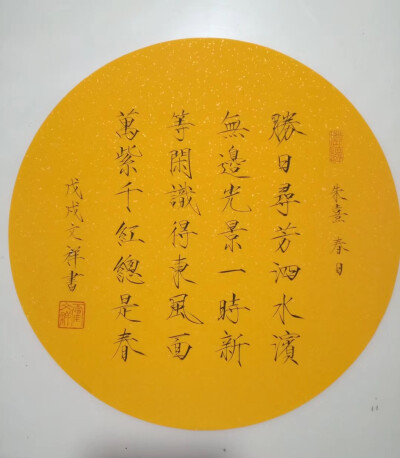 朱熹 春日
勝日尋芳泗水濱
無邊光景一時新
等閑識得東風面
萬紫千紅總是春
戊戌文祥書